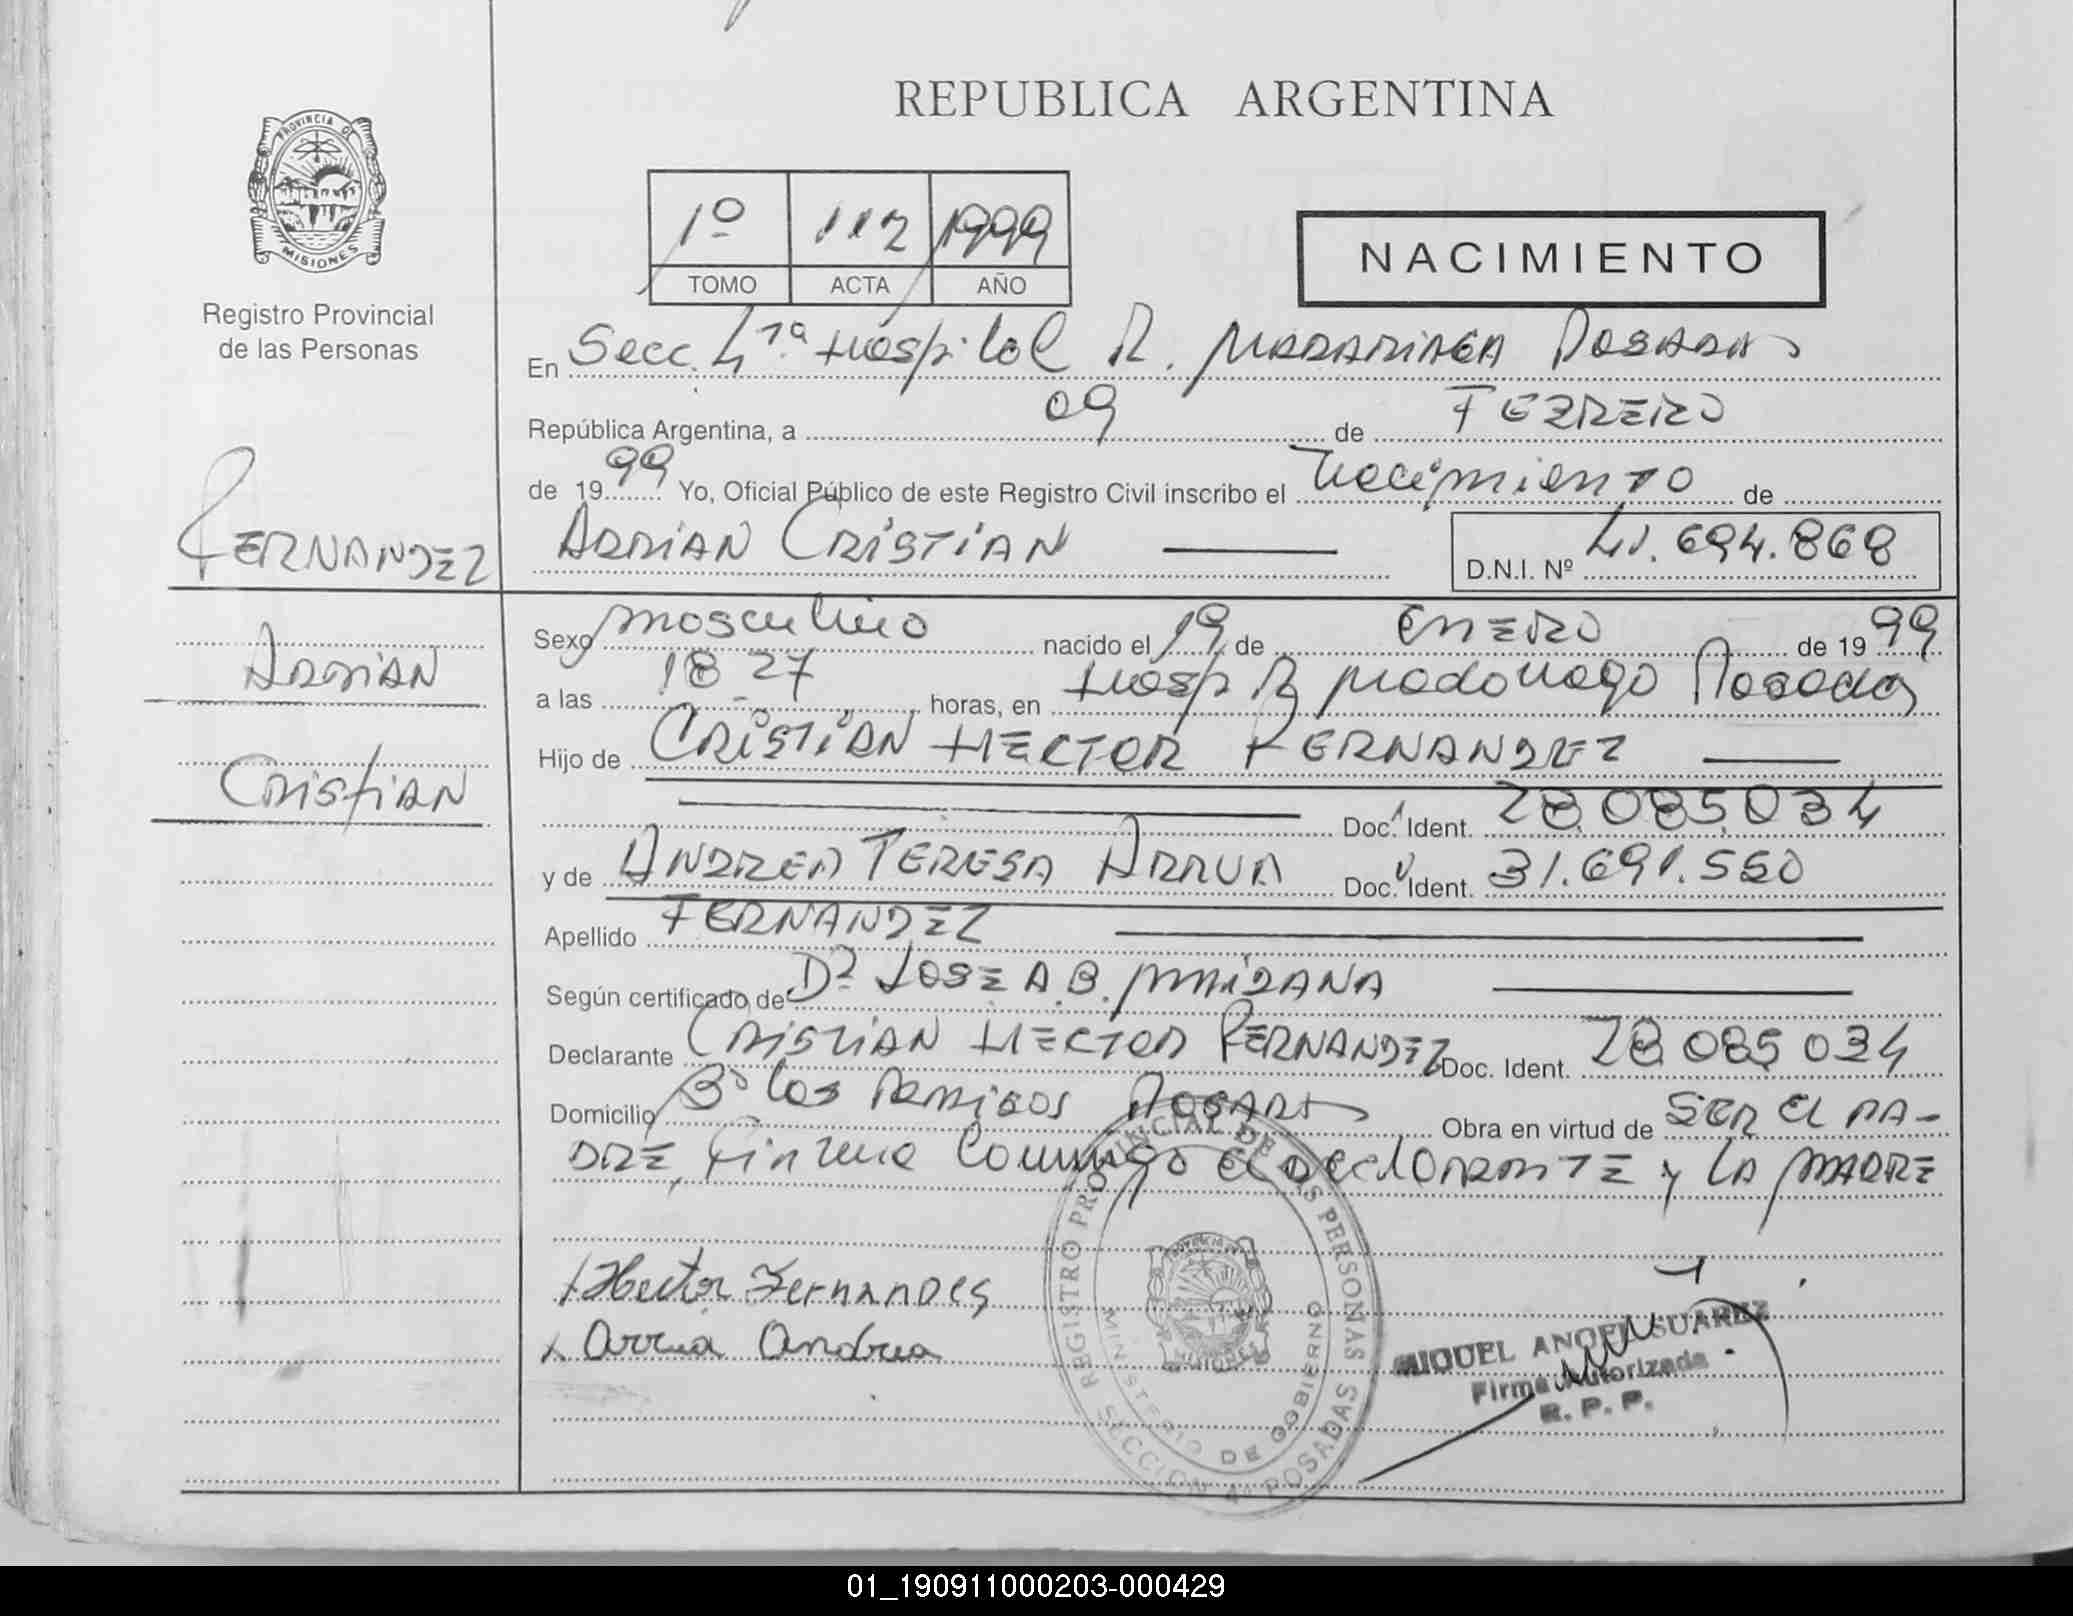 REPUBLICA ARGENTINA
PROVINCIA DE
MISIONES
Registro Provincial
de las Personas
1º 112 1999
TOMO ACTA AÑO
NACIMIENTO
En Secc. 4ª Hospital R. MADARIAGA POSADAS
República Argentina, a 09 de FEBRERO
de 19 99 Yo, Oficial Público de este Registro Civil inscribo el Nacimiento de
FERNANDEZ
ADRIAN CRISTIAN
D.N.I. Nº 41.694.868
ADRIAN
CRISTIAN
Sexo masculino nacido el 19 de ENERO de 19 99
a las 18 27 horas, en Hosp R madariaga Posadas
Hijo de CRISTIAN HECTOR FERNANDEZ
Doc. Ident. 28.085.034
y de ANDREA TERESA ARRUA Doc. Ident. 31.691.550
Apellido FERNANDEZ
Según certificado de Dº JOSE A.B. MAIDANA
Declarante CRISTIAN HECTOR FERNANDEZ Doc. Ident. 28.085.034
Domicilio Bº los POSADAS Obra en virtud de SER EL PA-
DRE, firma conmigo el DEClARANTE y LA MADRE
Hector Fernandes
Arrua Andrea
REGISTRO PROVINCIAL DE LAS PERSONAS
MINISTERIO DE GOBIERNO
SECCION 4ª POSADAS
MISIONES
MIGUEL ANGEL SUAREZ
Firma Autorizada
R. P. P.
01_190911000203-000429